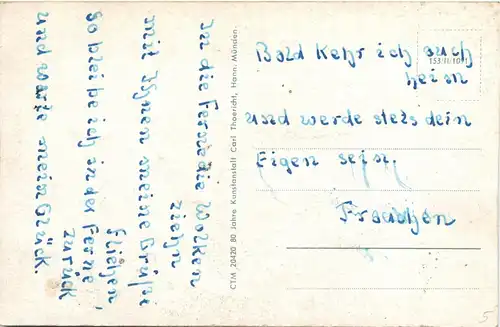 In die Ferne die Wolken
ziehn
mit Ihnen meine Grüße
fliehen,
so bleibe ich in der Ferne
zurück
und warte mein Glück
CTM 20420 80 Jahre Kunstanstalt Carl Thoericht, Hann. Münden
153/II/1091
Bald Kehr ich auch
heim
und werde stets dein
Eigen sein.
5